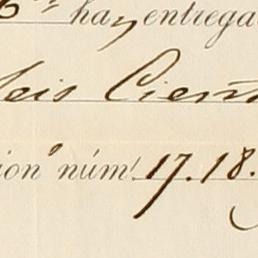 han entrega
seis Cien
ion núm! 17.18.